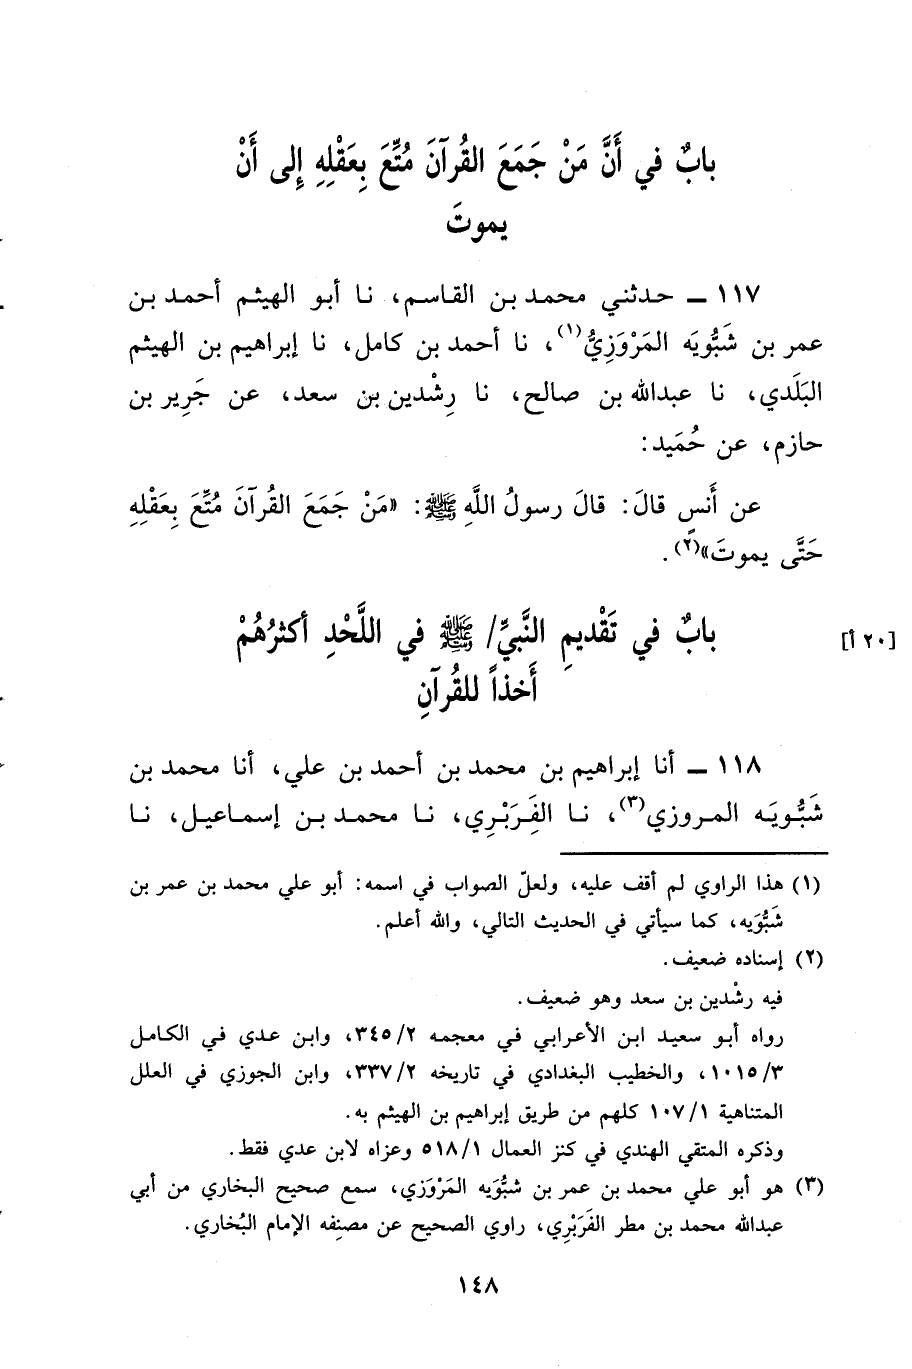 بابٌ في أَنَّ مَنْ جَمَعَ القُرآنَ مُتِّعَ بِعَقْلِهِ إِلى أَنْ
يموتَ
١١٧ ــ حدثني محمد بن القاسم، نا أبو الهيثم أحمد بن
عمر بن شَبُّويَه المَرْوَزِيُّ(١)، نا أحمد بن كامل، نا إبراهيم بن الهيثم
البَلَدي، نا عبدالله بن صالح، نا رِشْدين بن سعد، عن جَرِير بن
حازم، عن حُمَيد:
عن أَنسٍ قالَ: قالَ رسولُ اللَّهِ ﷺ: «مَنْ جَمَعَ القُرآنَ مُتِّعَ بِعَقْلِهِ
حَتَّى يموتَ»(٢).
بابٌ في تَقْديمِ النَّبيِّ/ ﷺ في اللَّحْدِ أكثرُهُمْ
[٢٠ أ]
أَخذاً للقُرآنِ
١١٨ ــ أنا إبراهيم بن محمد بن أحمد بن علي، أنا محمد بن
شَبُّويَه المروزي(٣)، نا الفِرَبْرِي، نا محمد بن إسماعيل، نا
(١) هذا الراوي لم أقف عليه، ولعلّ الصواب في اسمه: أبو علي محمد بن عمر بن
شَبُّوَيه، كما سيأتي في الحديث التالي، والله أعلم.
(٢) إسناده ضعيف.
فيه رشْدين بن سعد وهو ضعيف.
رواه أبو سعيد ابن الأعرابي في معجمه ٣٤٥/٢، وابن عدي في الكامل
١٠١٥/٣، والخطيب البغدادي في تاريخه ٣٣٧/٢، وابن الجوزي في العلل
المتناهية ١٠٧/١ كلهم من طريق إبراهيم بن الهيثم به.
وذكره المتقي الهندي في كنز العمال ٥١٨/١ وعزاه لابن عدي فقط.
(٣) هو أبو علي محمد بن عمر بن شبُّوَيه المَرْوَزي، سمع صحيح البخاري من أبي
عبدالله محمد بن مطر الفَرَبْرِي، راوي الصحيح عن مصنِفه الإمام البُخاري.
١٤٨